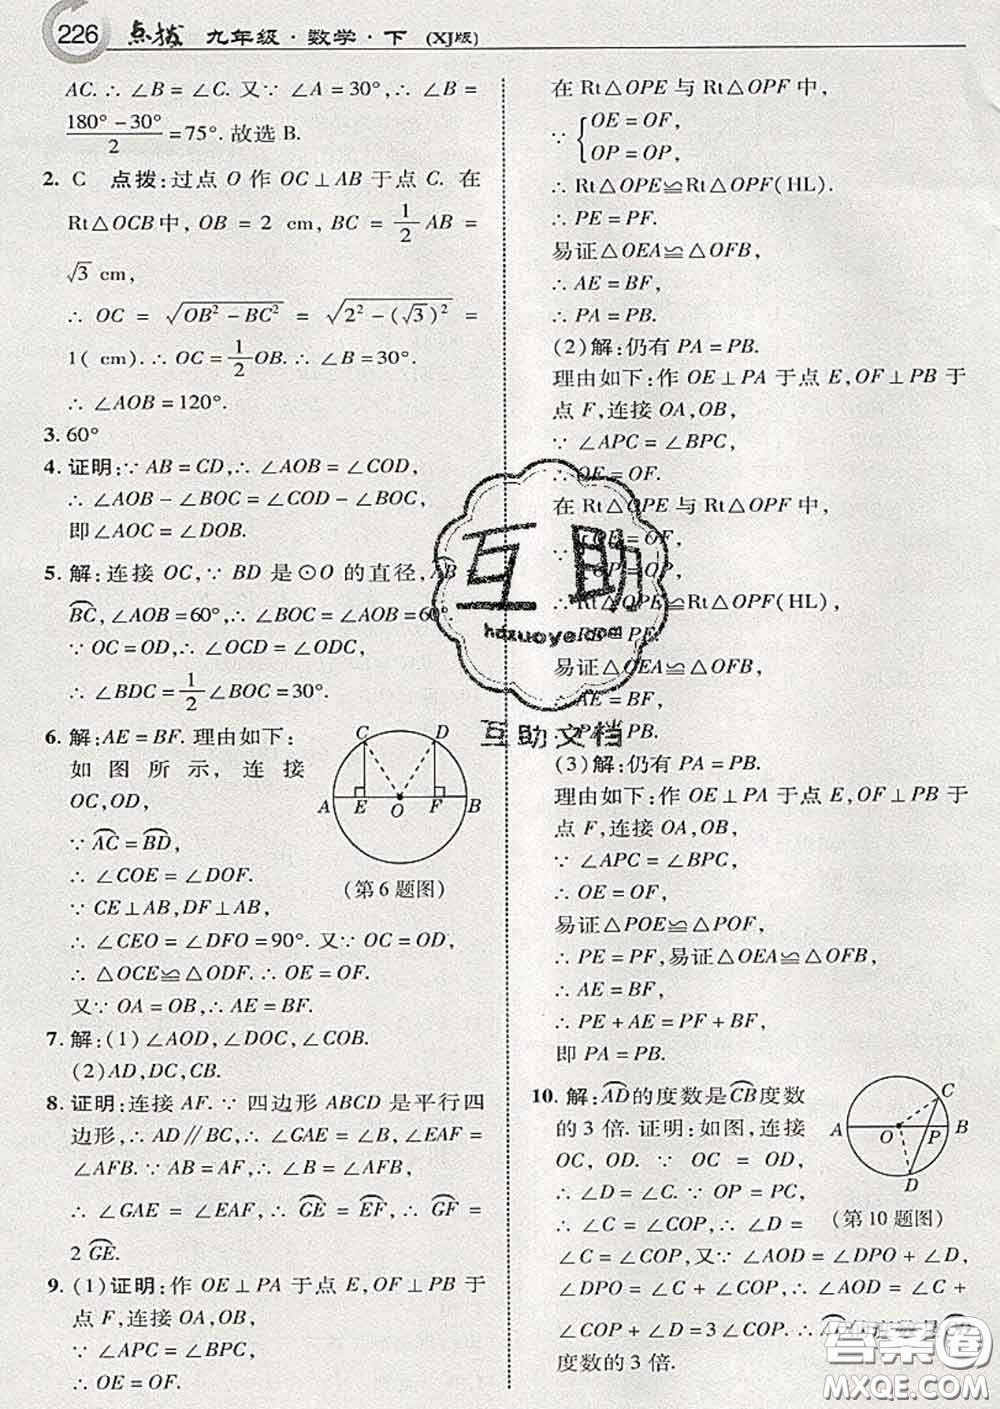 226 点拨 九年级·数学·下 (XJ版)
AC.∴∠B=∠C.又∵∠A=30°,∴∠B=
(180°-30°)/2=75°.故选B.
2. C 点拨:过点O作OC⊥AB于点C.在
Rt△OCB中,OB=2 cm,BC=1/2AB=
√3 cm,
∴OC=√(OB²-BC²)=√(2²-(√3)²)=
1( cm).∴OC=1/2OB.∴∠B=30°.
∴∠AOB=120°.
3. 60°
4. 证明:∵AB=CD,∴∠AOB=∠COD,
∴∠AOB-∠BOC=∠COD-∠BOC,
即∠AOC=∠DOB.
5. 解:连接OC,∵BD是⊙O的直径,
⌒BC,∠AOB=60°,∴∠BOC=∠AOB=60°
∵OC=OD,∴∠OCD=∠ODC.
∴∠BDC=1/2∠BOC=30°.
6. 解:AE=BF.理由如下:
如图所示,连接
OC,OD,
∵⌒AC=⌒BD,
∴∠COE=∠DOF.
∵CE⊥AB,DF⊥AB,
∴∠CEO=∠DFO=90°.又∵OC=OD,
∴△OCE≌△ODF.∴OE=OF.
又∵OA=OB,∴AE=BF.
C D
A E O F B
(第6题图)
7. 解:(1)∠AOD,∠DOC,∠COB.
(2)AD,DC,CB.
8. 证明:连接AF.∵四边形ABCD是平行四
边形,∴AD∥BC,∴∠GAE=∠B,∠EAF=
∠AFB.∵AB=AF,∴∠B=∠AFB,∴
∠GAE=∠EAF,∴⌒GE=⌒EF,∴⌒GF=
2⌒GE.
9. (1)证明:作OE⊥PA于点E,OF⊥PB于
点F,连接OA,OB,
∵∠APC=∠BPC,
∴OE=OF.
在Rt△OPE与Rt△OPF中,
∵{OE=OF,
OP=OP,
∴Rt△OPE≌Rt△OPF(HL).
∴PE=PF.
易证△OEA≌△OFB,
∴AE=BF,
∴PA=PB.
(2)解:仍有PA=PB.
理由如下:作OE⊥PA于点E,OF⊥PB于
点F,连接OA,OB,
∵∠APC=∠BPC,
∴OE=OF.
在Rt△OPE与Rt△OPF中,
=OF,
=OP,
∴Rt△OPE≌Rt△OPF(HL),
PE.
易证△OEA≌△OFB,
∴AE=BF,
PB.
(3)解:仍有PA=PB.
理由如下:作OE⊥PA于点E,OF⊥PB于
点F,连接OA,OB,
∵∠APC=∠BPC,
∴OE=OF.
易证△POE≌△POF,
∴PE=PF,易证△OEA≌△OFB,
∴AE=BF,
∴PE+AE=PF+BF,
即PA=PB.
10. 解:⌒AD的度数是⌒CB度数
的3倍.证明:如图,连接
OC,OD.∵OC=OD,
∴∠C=∠D.∵OP=PC,
∴∠C=∠COP,∴∠D=
∠C=∠COP,又∵∠AOD=∠DPO+∠D,
∠DPO=∠C+∠COP,∴∠AOD=∠C+
∠COP+∠D=3∠COP.∴⌒AD的度数是
度数的3倍.
C
A O P B
D
(第10题图)
互助
hdzuoye.com
互助文档
答案圈
MXQE.COM